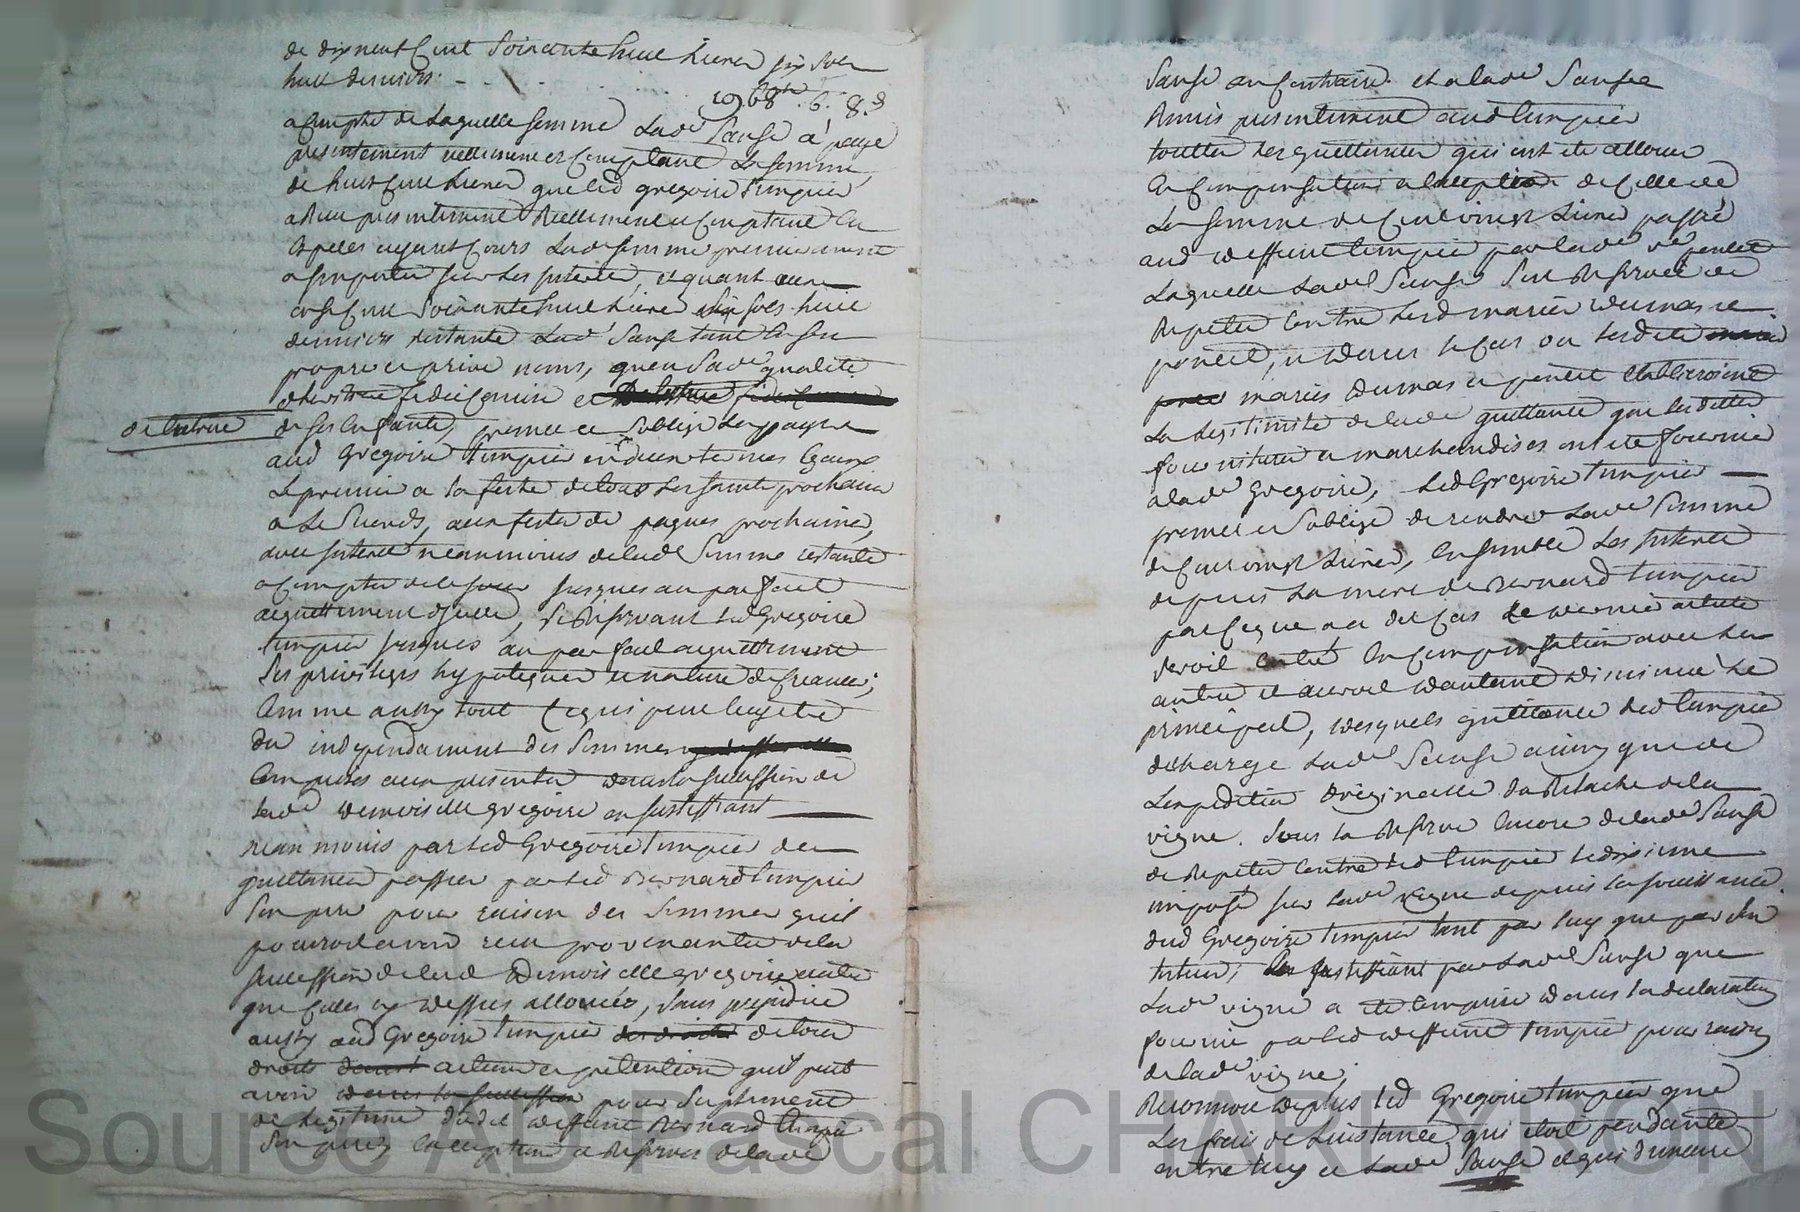 de dix neuf Cent Soixante huit Livres six sols
huit deniers
1968 6. 8.d
a Compte de Laquelle somme Lad.e Sause a payé
presentement reellement et Comptant La somme
de huit Cent Livres que led gregoire tempier
a Reçu presentement Reellement et Comptant En
Espeles ayant Cours Lad somme premierement
a imputer sur Les interets, et quant aux
onse Cent Soixante huit Livres six sols huit
deniers restants Lad.e Sause tant En son
propre et privé nom, qu'en Sad.e qualité
d'heritiere fideicomise et
de lhoirie
de ses Enfants, promet et S'oblige de payer
aud Gregoire tempier en deux termes Egaux
Le premier a la feste de tous Les saints prochaine
a Le Second, aux festes de paques prochaines,
avec interets neanmoins de lad.e Somme restante
a Compter de ce jour jusques au parfait
acquittement d'icelle, Se Reservant led Gregoire
tempier jusques au parfait acquittement
Ses privileges hypoteques et nature de Creance;
Comme aussy tout Ce qui peut luy etre
du independament des Sommes
Comprises aux presentes dans la succession de
lad.e demoiselle gregoire en justiffiant
neanmoins par led Gregoire tempier des
quittances passées par led Bernard tempier
Son pere pour raison des Sommes quil
pourroit avoir reçu provenantes de la
succession de lad.e Demoiselle gregoire autre
que Celles cy dessus allouées, sans prejudice
aussy aud Gregoire tempier de tous
droits actions et pretentions qu'il peut
avoir pour Suplement
de Legitime dud.t deffunt Bernard tempier
Son pere, exception et Reserves de lad.e
Sause au Contraire. et a lad.e Sause
Remis presentement aud tempier
touttes Les quittances qui ont ete allouées
En Compensation a l'exception de Celle de
La somme de Cent vingt Livres passée
aud deffunt tempier par lad.e
Laquelle Lad.e Sause S'est Reservée de
Repeter Contre Lesd mariés dumas et
poncet, et dans le Cas ou lesdits
mariés dumas et poncet etabliroient
La Legitimité de lad.e quittance que lesdittes
fournitures et marchandises ont ete fournies
a lad.e Gregoire, led Gregoire tempier
promet et S'oblige de rendre Lad.e Somme
de Cent vingt Livres, Ensemble Les interets
depuis La mort de Bernard tempier
par Ce que au dit Cas Le dernier article
seroit Entré En Compensation avec les
autres et auroit d'autant diminué Le
principal, desquels quittance led tempier
decharge Lad.e Sause ainsy que de
L'expedition originelle du Relache de la
vigne. Sous la Reserve Encore de lad.e Sause
de Repeter Contre led tempier le dixieme
imposé sur lad.e vigne depuis la jouissance
dud Gregoire tempier tant par luy que par son
tuteur, En justiffiant par Lad.e Sause que
Lad.e vigne a ete Comprise dans la declaration
fournie par led deffunt tempier pour raison
de lad.e vigne;
Reconnoit de plus led Gregoire tempier que
Les frais de L'instance qui etoit pendante
entre luy et Lad.e Sause et qui demeure
Source AD Pascal CHAREYRON